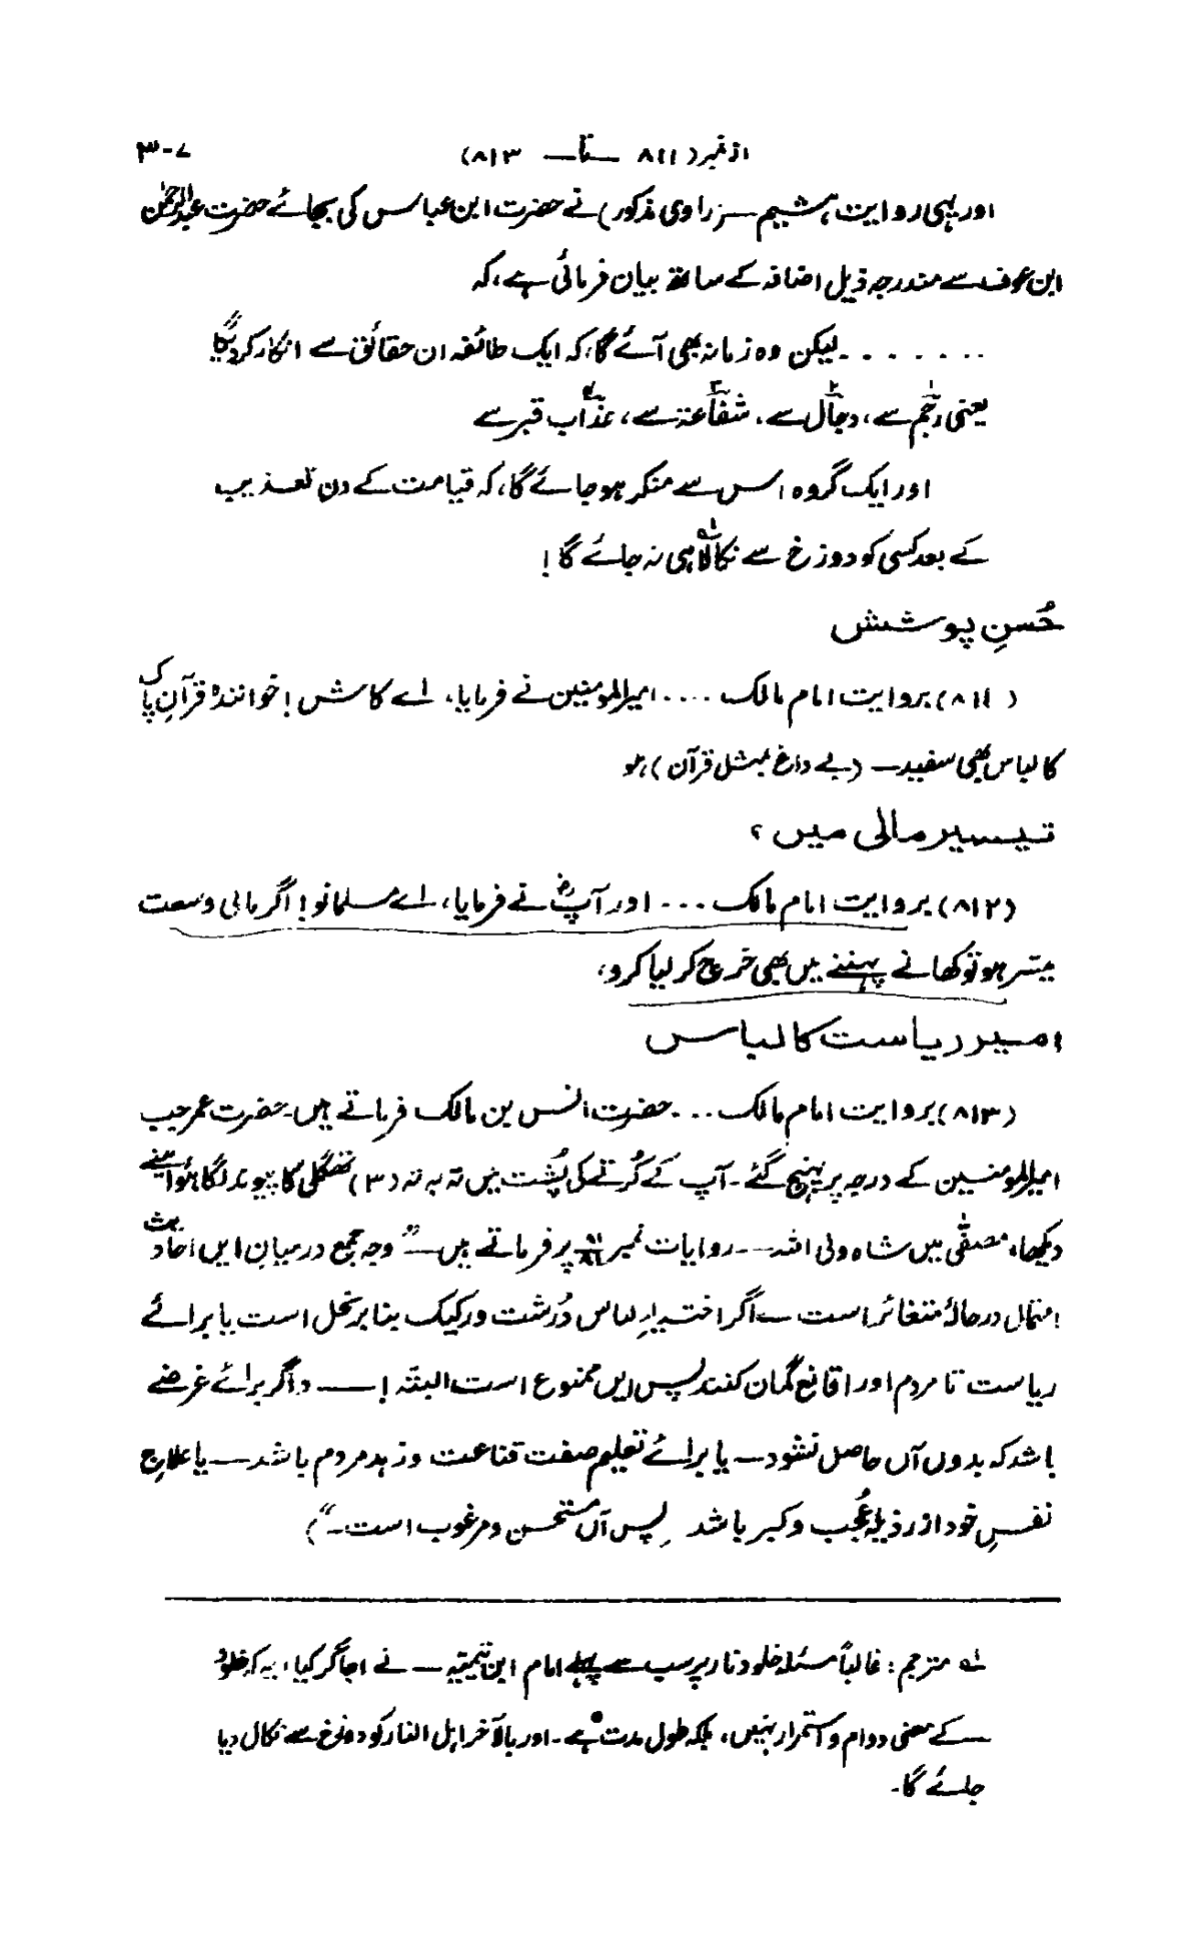 از نمبر (۸۱۱ — تا — ۸۱۳) ۳۰۷
اور یہی روایت ہشیم — (راوی مذکور) نے حضرت ابن عباس کی بجائے حضرت عبدالرحمٰن
ابن عوف سے مندرجہ ذیل اضافہ کے ساتھ بیان فرمائی ہے، کہ
. . . . . . . لیکن وہ زمانہ بھی آئے گا، کہ ایک طائفہ ان حقائق سے انکار کر دیگا"
یعنی رجم۱ سے، دجال۲ سے، شفاعت۳ سے، عذاب۴ قبر سے
اور ایک گروہ اس سے منکر ہو جائے گا، کہ قیامت کے دن تعذیب
کے بعد کسی کو دوزخ سے نکالا۱؎ ہی نہ جائے گا!
حُسنِ پوشش
(۸۱۱) بروایت امام مالک .... امیرالمومنین نے فرمایا، اے کاش! خوانندۂ قرآنِ پاک
کا لباس بھی سفید — (بے داغ بمثل قرآن) ہو
تیسیر مالی میں؟
(۸۱۲) بروایت امام مالک ... اور آپؓ نے فرمایا، اے مسلمانو! اگر مالی وسعت
میسر ہو تو کھانے پہننے میں بھی خرچ کر لیا کرو،
امیر ریاست کا لباس
(۸۱۳) بروایت امام مالک ... حضرت انس بن مالک فرماتے ہیں۔ حضرت عمر جب
امیرالمومنین کے درجہ پر پہنچ گئے۔ آپ کے کُرتے کی پُشت میں تہ بہ تہ (۳) تھگلی کا پیوند لگا ہوا میں نے
دیکھا، مصفّٰی میں شاہ ولی اللہ -- روایات نمبر پر فرماتے ہیں — "وجہ جمع درمیانِ ایں احادیث
احتمال در حالۂ متغائر است — اگر اختیارِ لباس دُرشت و رکیک بنا بر بخل است یا برائے
ریاست تا مردم اورا قانع گمان کنند پس ایں ممنوع است البتہ! — و اگر برائے غرضے
باشد کہ بدوں آں حاصل نشود — یا برائے تعلیم صفت قناعت و زہد مردم باشد — یا علاج
نفسِ خود از رذیلۂ عُجب و کبر باشد پس آں مستحسن و مرغوب است۔")
۱؎ مترجم: غالباً مسئلہ خلود نار پر سب سے پہلے امام ابن تیمیّہ — نے اجاگر کیا، یہ کہ خلود
— کے معنی دوام و استمرار نہیں، بلکہ طول مدت ہے۔ اور بالآخر اہل النار کو دوزخ سے نکال دیا
جائے گا۔